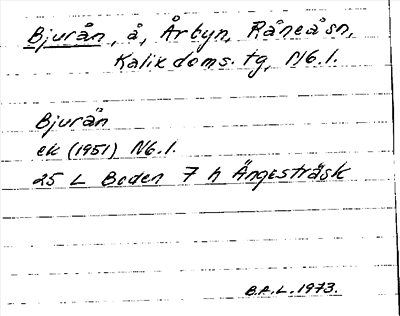 Bjurån, å, Årbyn, Råneå sn,
Kalix doms. tg, Nb. l.
Bjurån
ek (1951) Nb. l.
25 L Boden 7 h Ängesträsk
B.A.L. 1973.